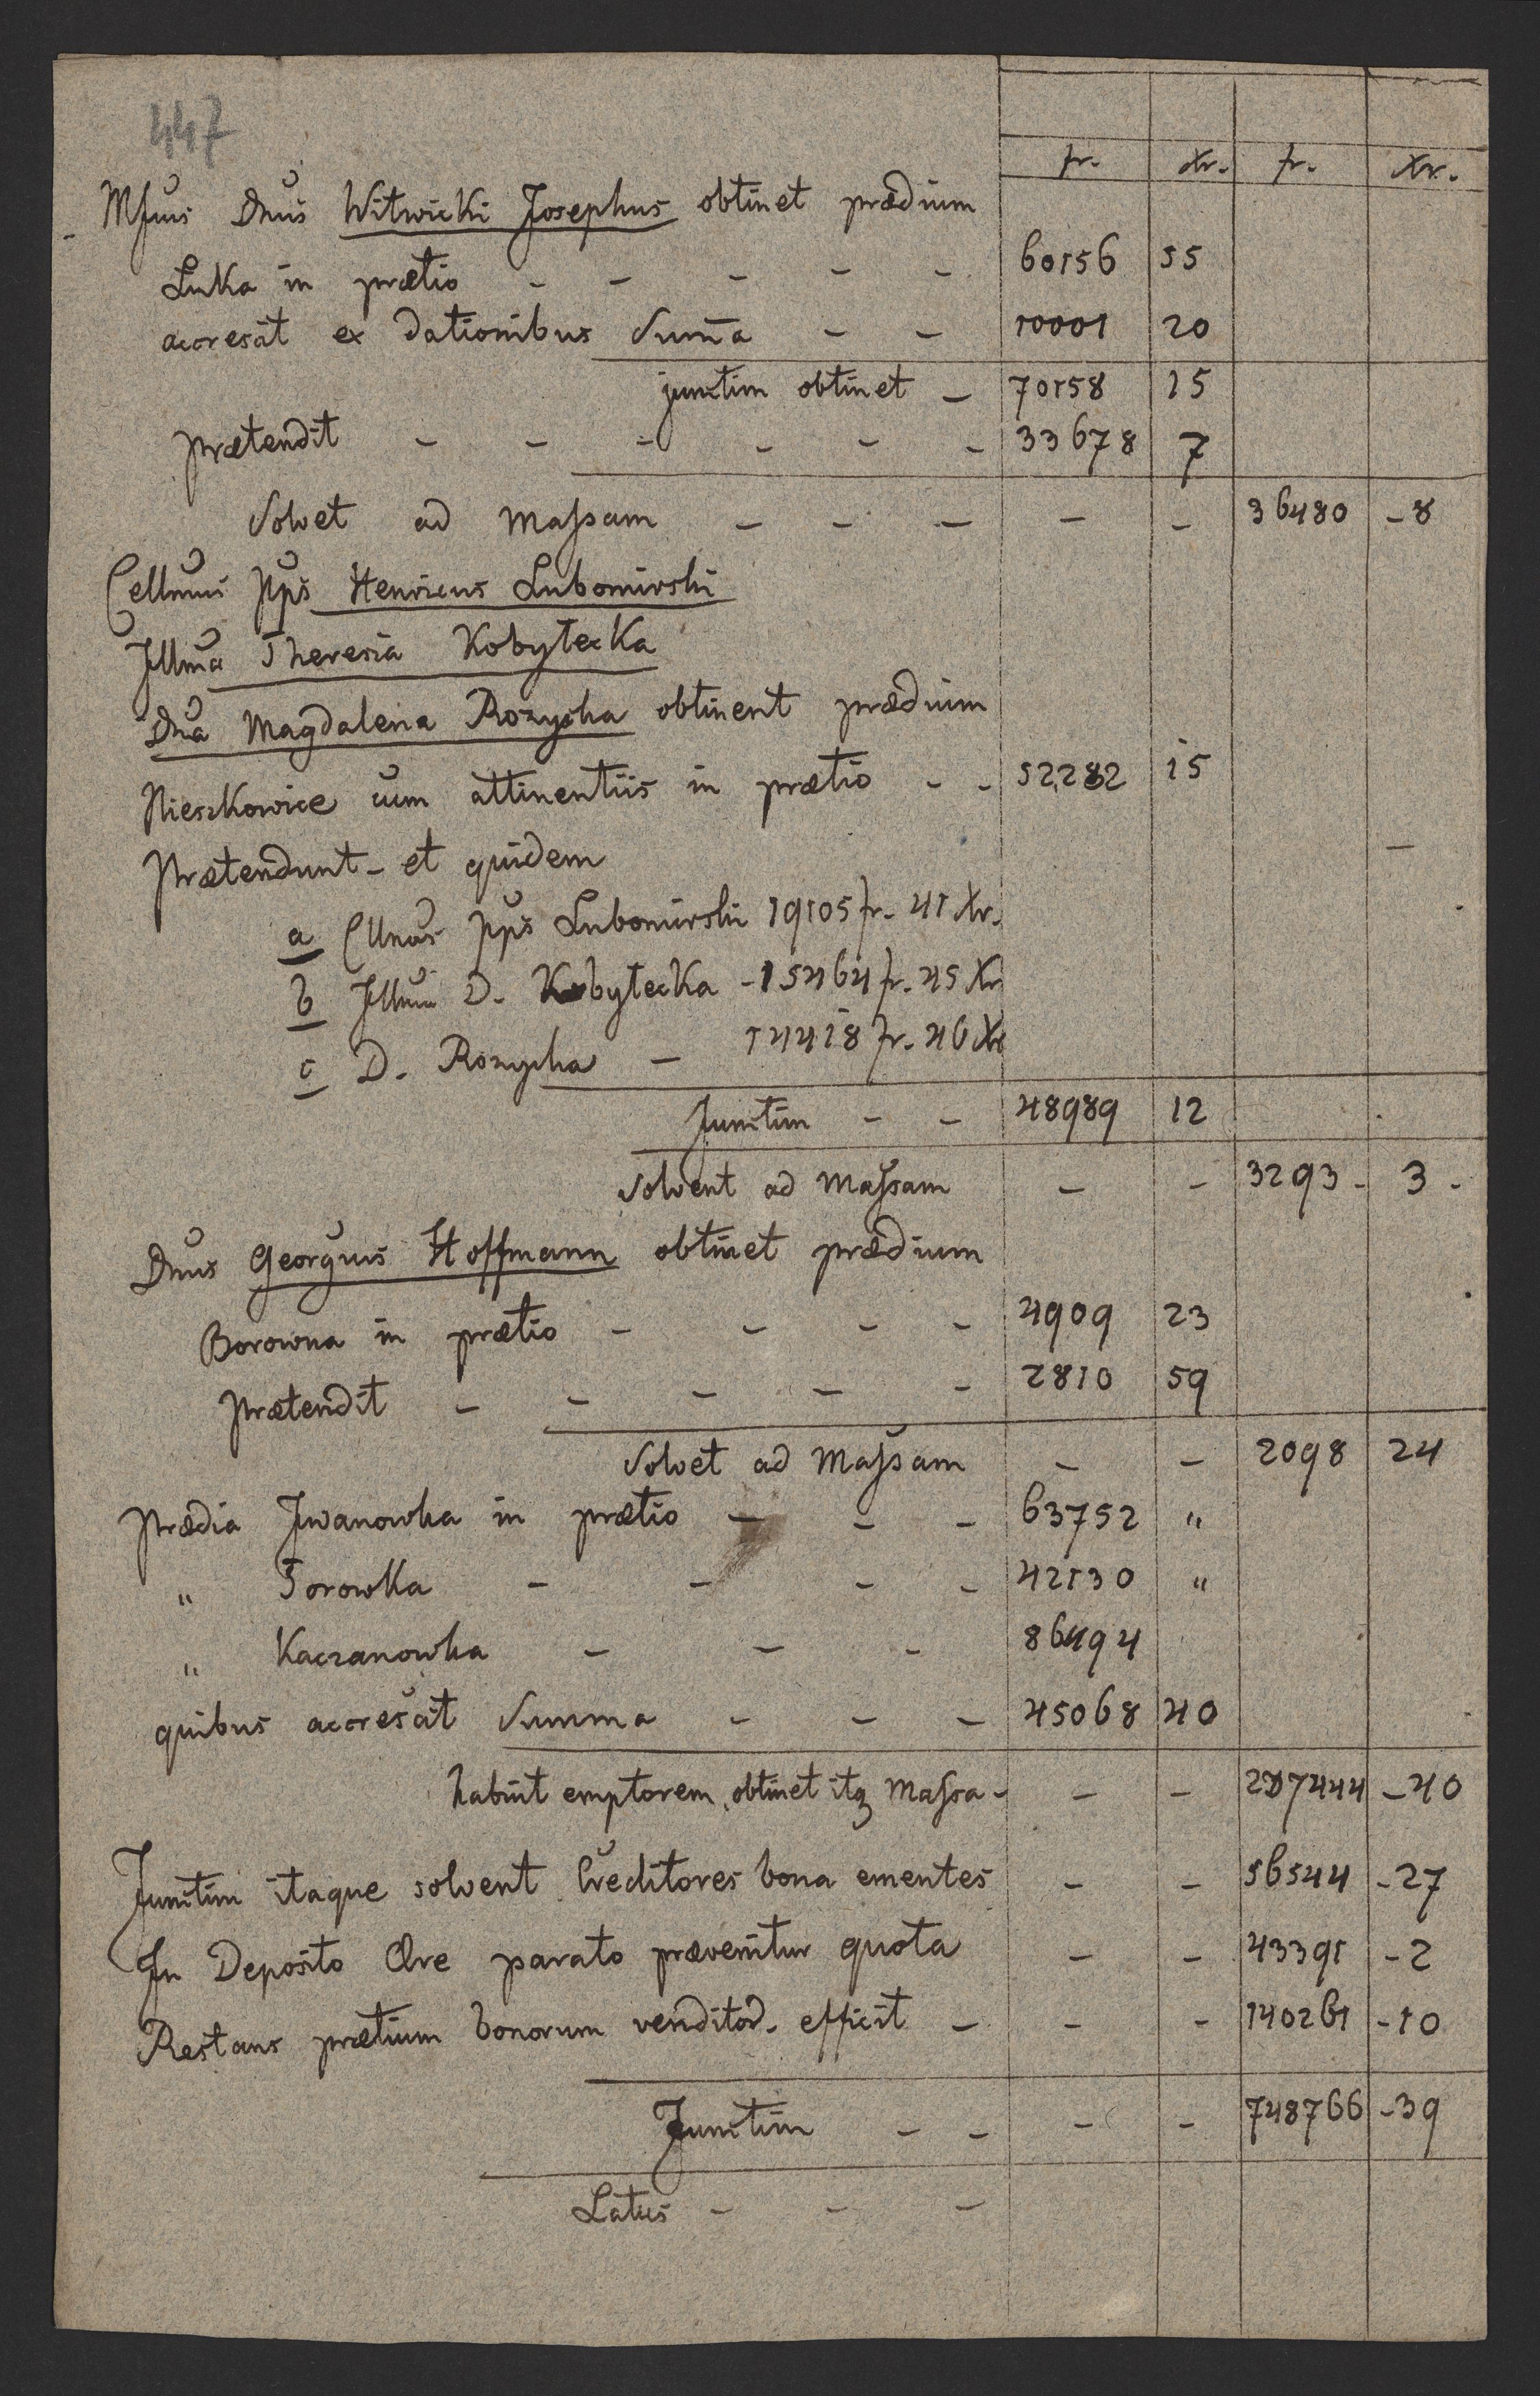 447
fr. xr. fr. xr.
Mfcus Dnus Witwicki Josephus obtinet prædium
Luka in prætio - - - - - 60156 55
accrescit ex dationibus Summa - - 10001 20
junctim obtinet - 70158 15
prætendit - - - - - - 33678 7
Solvet ad Massam - - - - - 36480 - 8
Cellmus Pps Henricus Lubomirski
Illma Theresia Kobytecka
Dna Magdalena Rozycka obtinent prædium
Nieszkowice cum attinentiis in prætio - - 52282 15
Prætendunt - et quidem
a Cllmus Pps Lubomirski 19105 fr. 41 Xr.
b Illma D. Kobytecka - 15464 fr. 45 Xr
c D. Rozycka - 14418 fr. 46 Xr
Junctim - - 48989 12
Solvent ad Massam - - 3293 - 3 -
Dnus Georgius Hoffmann obtinet prædium
Borowna in prætio - - - - 4909 23
Prætendit - - - - - 2810 59
Solvet ad Massam - - 2098 24
Prædia Iwanowka in prætio - - - 63752 "
" Torowka - - - - 42130 "
" Kaczanowka - - - 86494
quibus accrescit Summa - - - 45068 40
habuit emptorem, obtinet itq Massa - - - 237444 - 40
Junctim itaque solvent Creditores bona ementes - - 56544 - 27
In Deposito Ære parato prævenitur quota - - 43391 - 2
Restans prætium bonorum venditor. efficit - - - 140261 - 10
Junctim - - - - 748766 - 39
Latus - - -